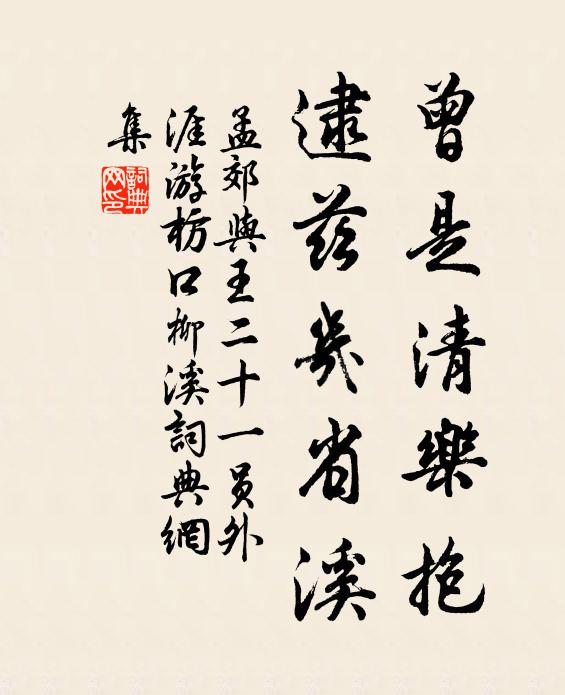 曾是清樂抱
逮茲幾省溪
孟郊與王二十一員外
涯游枋口柳溪詞典網
集
詞典
网印